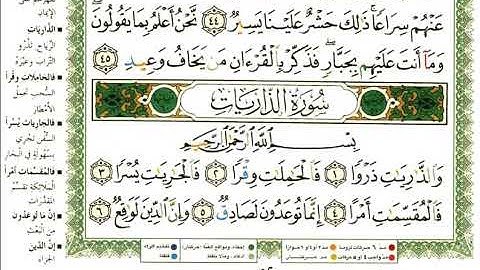 عَنْهُمْ سِرَاعًا ذَٰلِكَ حَشْرٌ عَلَيْنَا يَسِيرٌ ٤٤ نَّحْنُ أَعْلَمُ بِمَا يَقُولُونَ
وَمَا أَنتَ عَلَيْهِم بِجَبَّارٍ فَذَكِّرْ بِالْقُرْءَانِ مَن يَخَافُ وَعِيدِ ٤٥
سُورَةُ الذَّارِيَاتِ
بِسْمِ اللَّهِ الرَّحْمَٰنِ الرَّحِيمِ
وَالذَّارِيَاتِ ذَرْوًا ١ فَالْحَامِلَاتِ وِقْرًا ٢ فَالْجَارِيَاتِ يُسْرًا ٣
فَالْمُقَسِّمَاتِ أَمْرًا ٤ إِنَّمَا تُوعَدُونَ لَصَادِقٌ ٥ وَإِنَّ الدِّينَ لَوَاقِعٌ ٦
الإيمان
الذاريات
الرياح تذرو
التراب وغيره
فالحاملات وقرا
السحب تحمل
الأمطار
فالجاريات يسرا
السفن تجري
بسهولة في البحار
فالمقسمات أمرا
الملائكة تقسم
المقدرات
إن ما توعدون
من البعث
إن الدين
الجزاء